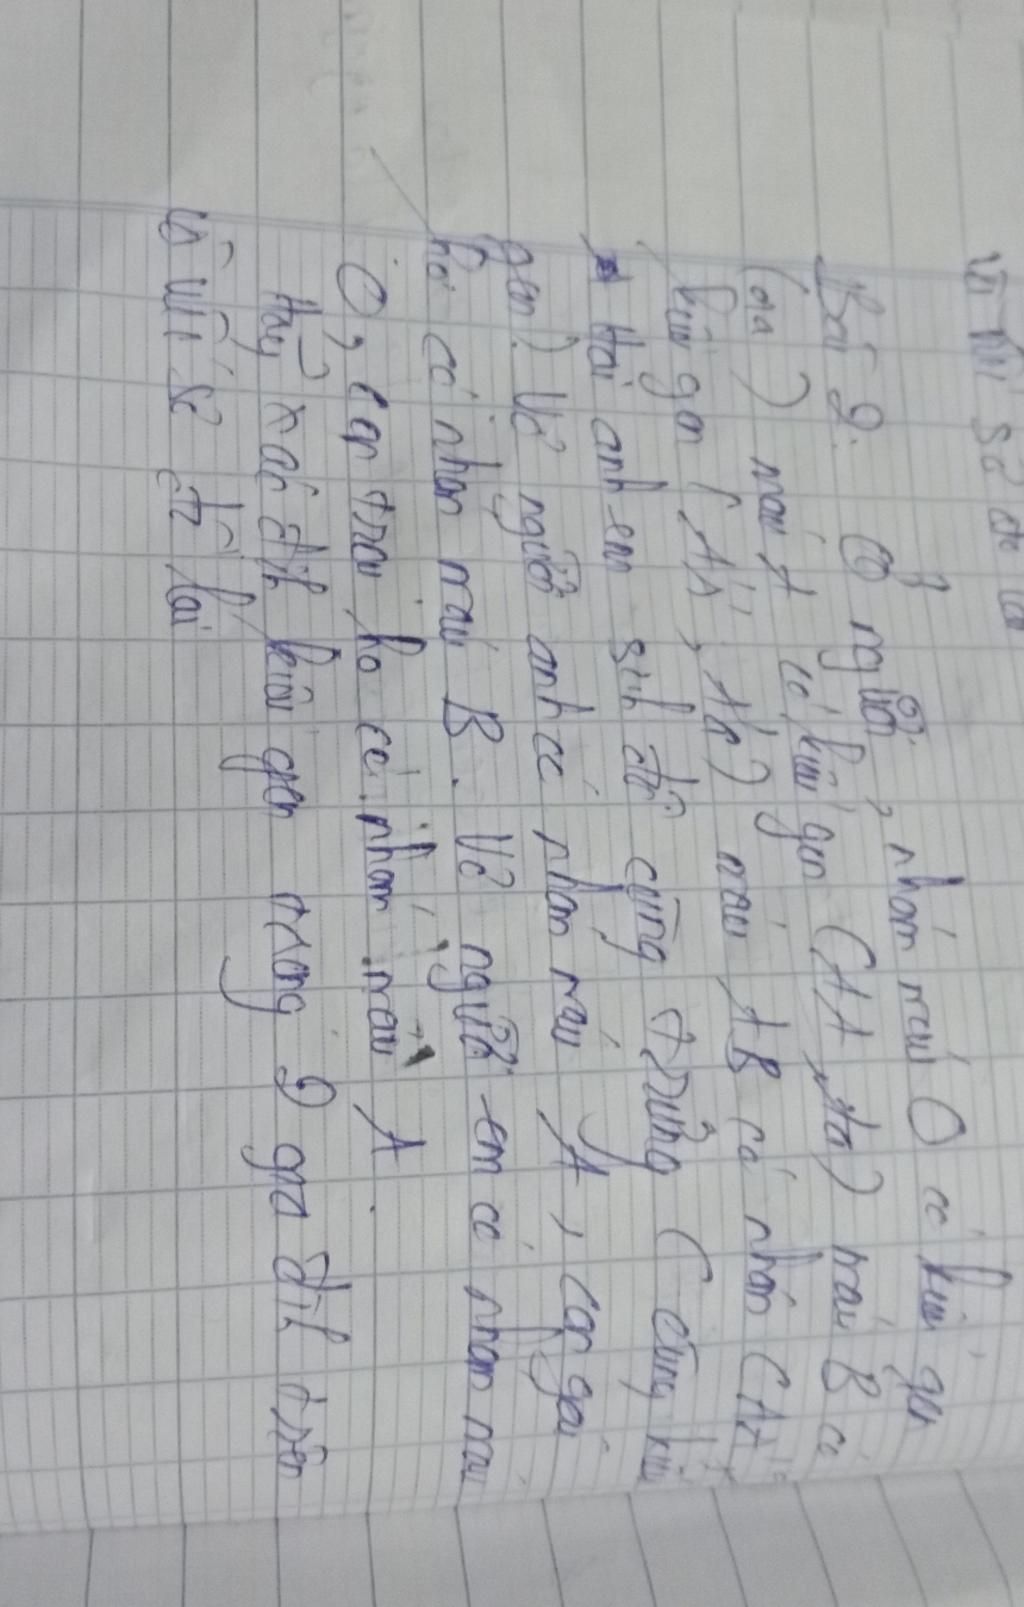 Vì ... sơ đồ lai
Bài 2: Ở người, nhóm máu O có kiểu gen
(aa) máu A có kiểu gen (AA, Aa) máu B có
kiểu gen (A'A', A'a) máu AB có nhóm (AA'
Hai anh em sinh đôi cùng trứng (cùng kiểu
gen). Vợ người anh có nhóm máu A, con gái
họ có nhóm máu B. Vợ người em có nhóm máu
O, con trai họ có nhóm máu A.
Hãy xác định kiểu gen trong 2 gia đình trên
và viết sơ đồ lai